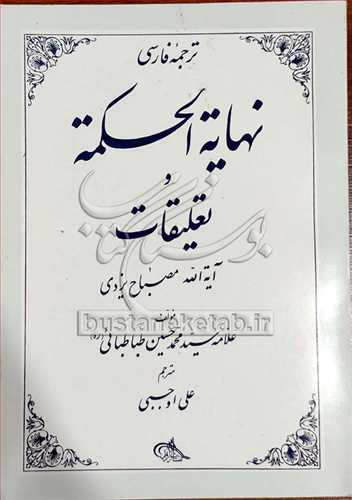 ترجمهٔ فارسی
نهایة الحکمة
و
تعلیقات
آیة الله مصباح یزدی
مؤلف
علامه سید محمد حسین طباطبائی (ره)
مترجم
علی اوجبی
بوستان کتاب
bustaneketab.ir